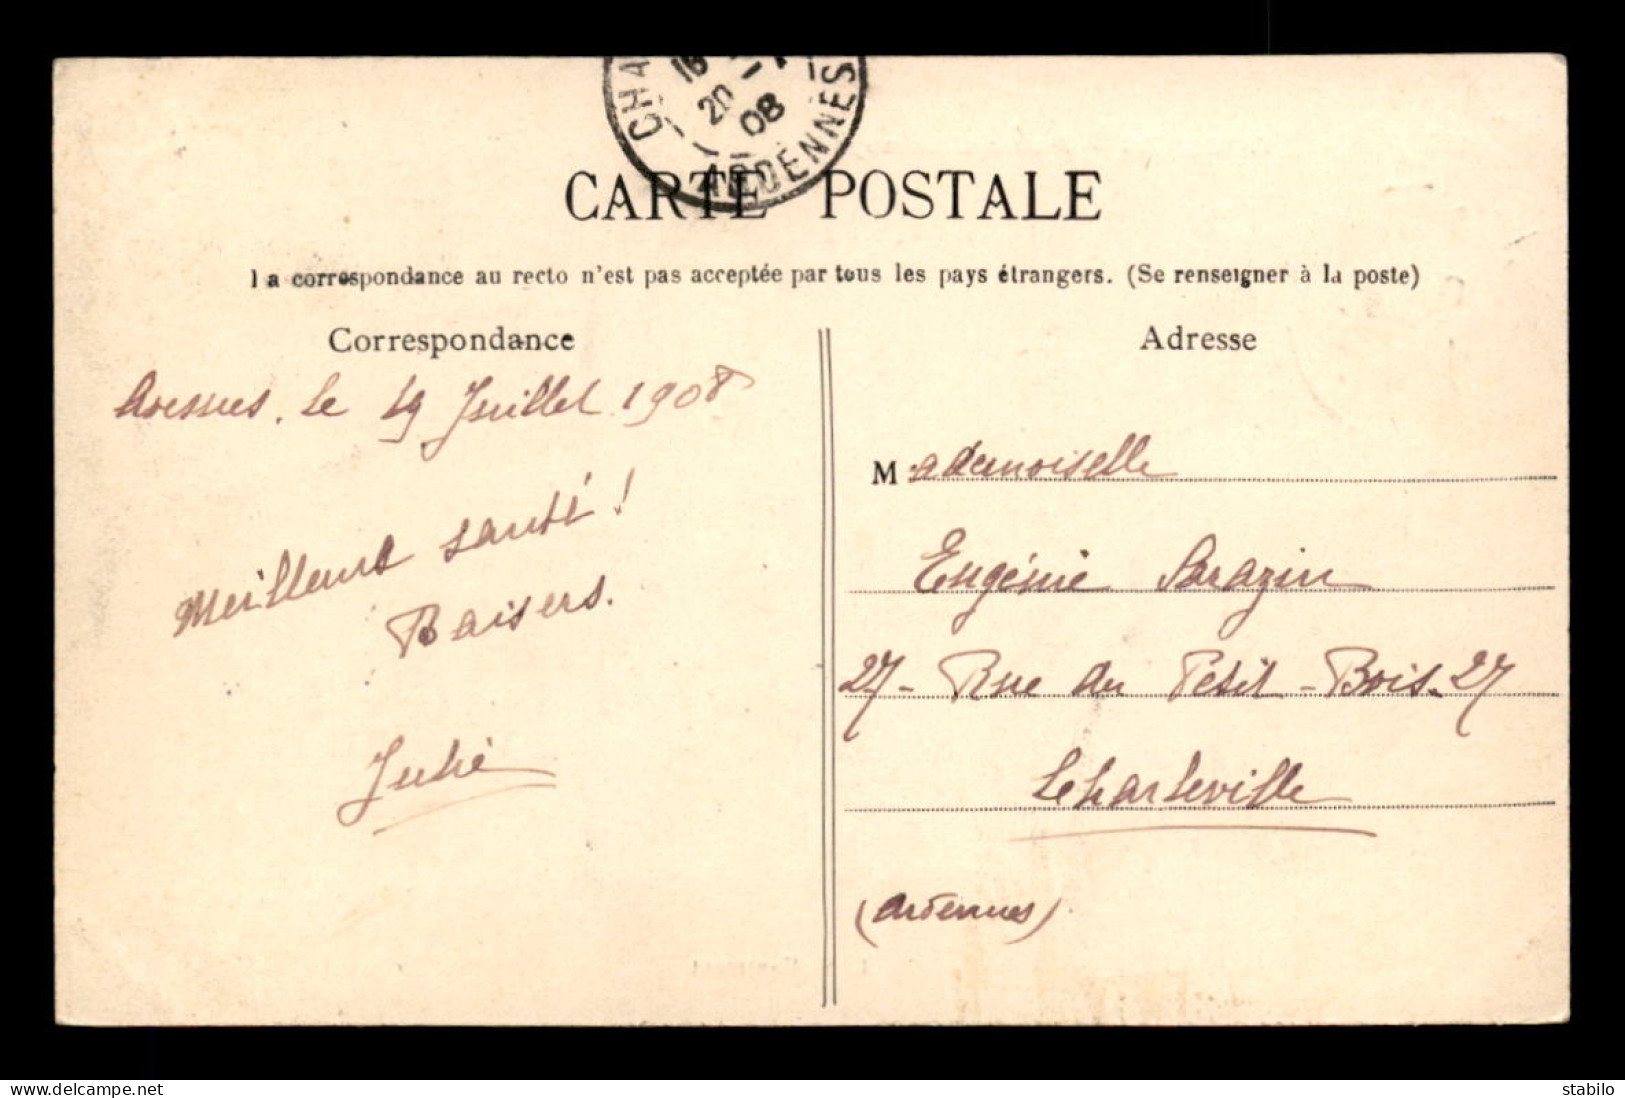 CHA
16
20 - 7
08
ARDENNES
CARTE POSTALE
La correspondance au recto n'est pas acceptée par tous les pays étrangers. (Se renseigner à la poste)
Correspondance
Adresse
Avesnes, le 19 Juillet 1908
Meilleure santé!
Baisers.
Julie
Mademoiselle
Eugénie Sarazin
27 - Rue du Petit - Bois - 27
Charleville
(Ardennes)
www.delcampe.net
stabilo